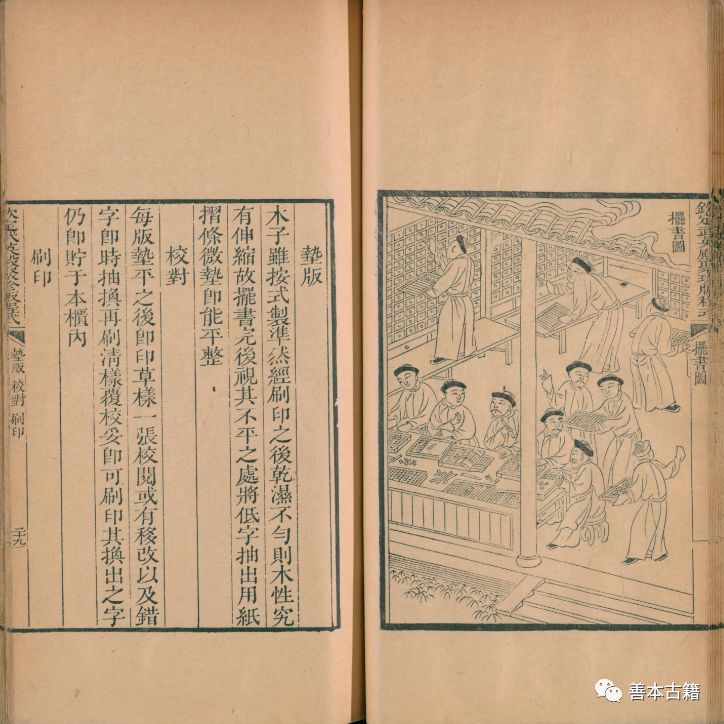 欽定武英殿聚珍版程式 擺書圖
擺書圖
墊版
木子雖按式製準然經刷印之後乾濕不勻則木性究
有伸縮故擺書完後視其不平之處將低字抽出用紙
摺條微墊即能平整
校對
每版墊平之後即印草樣一張校閱或有移改以及錯
字即時抽換再刷清樣覆校妥即可刷印其換出之字
仍即貯于本櫃內
刷印
欽定武英殿聚珍版程式 墊版 校對 刷印 二十九
善本古籍